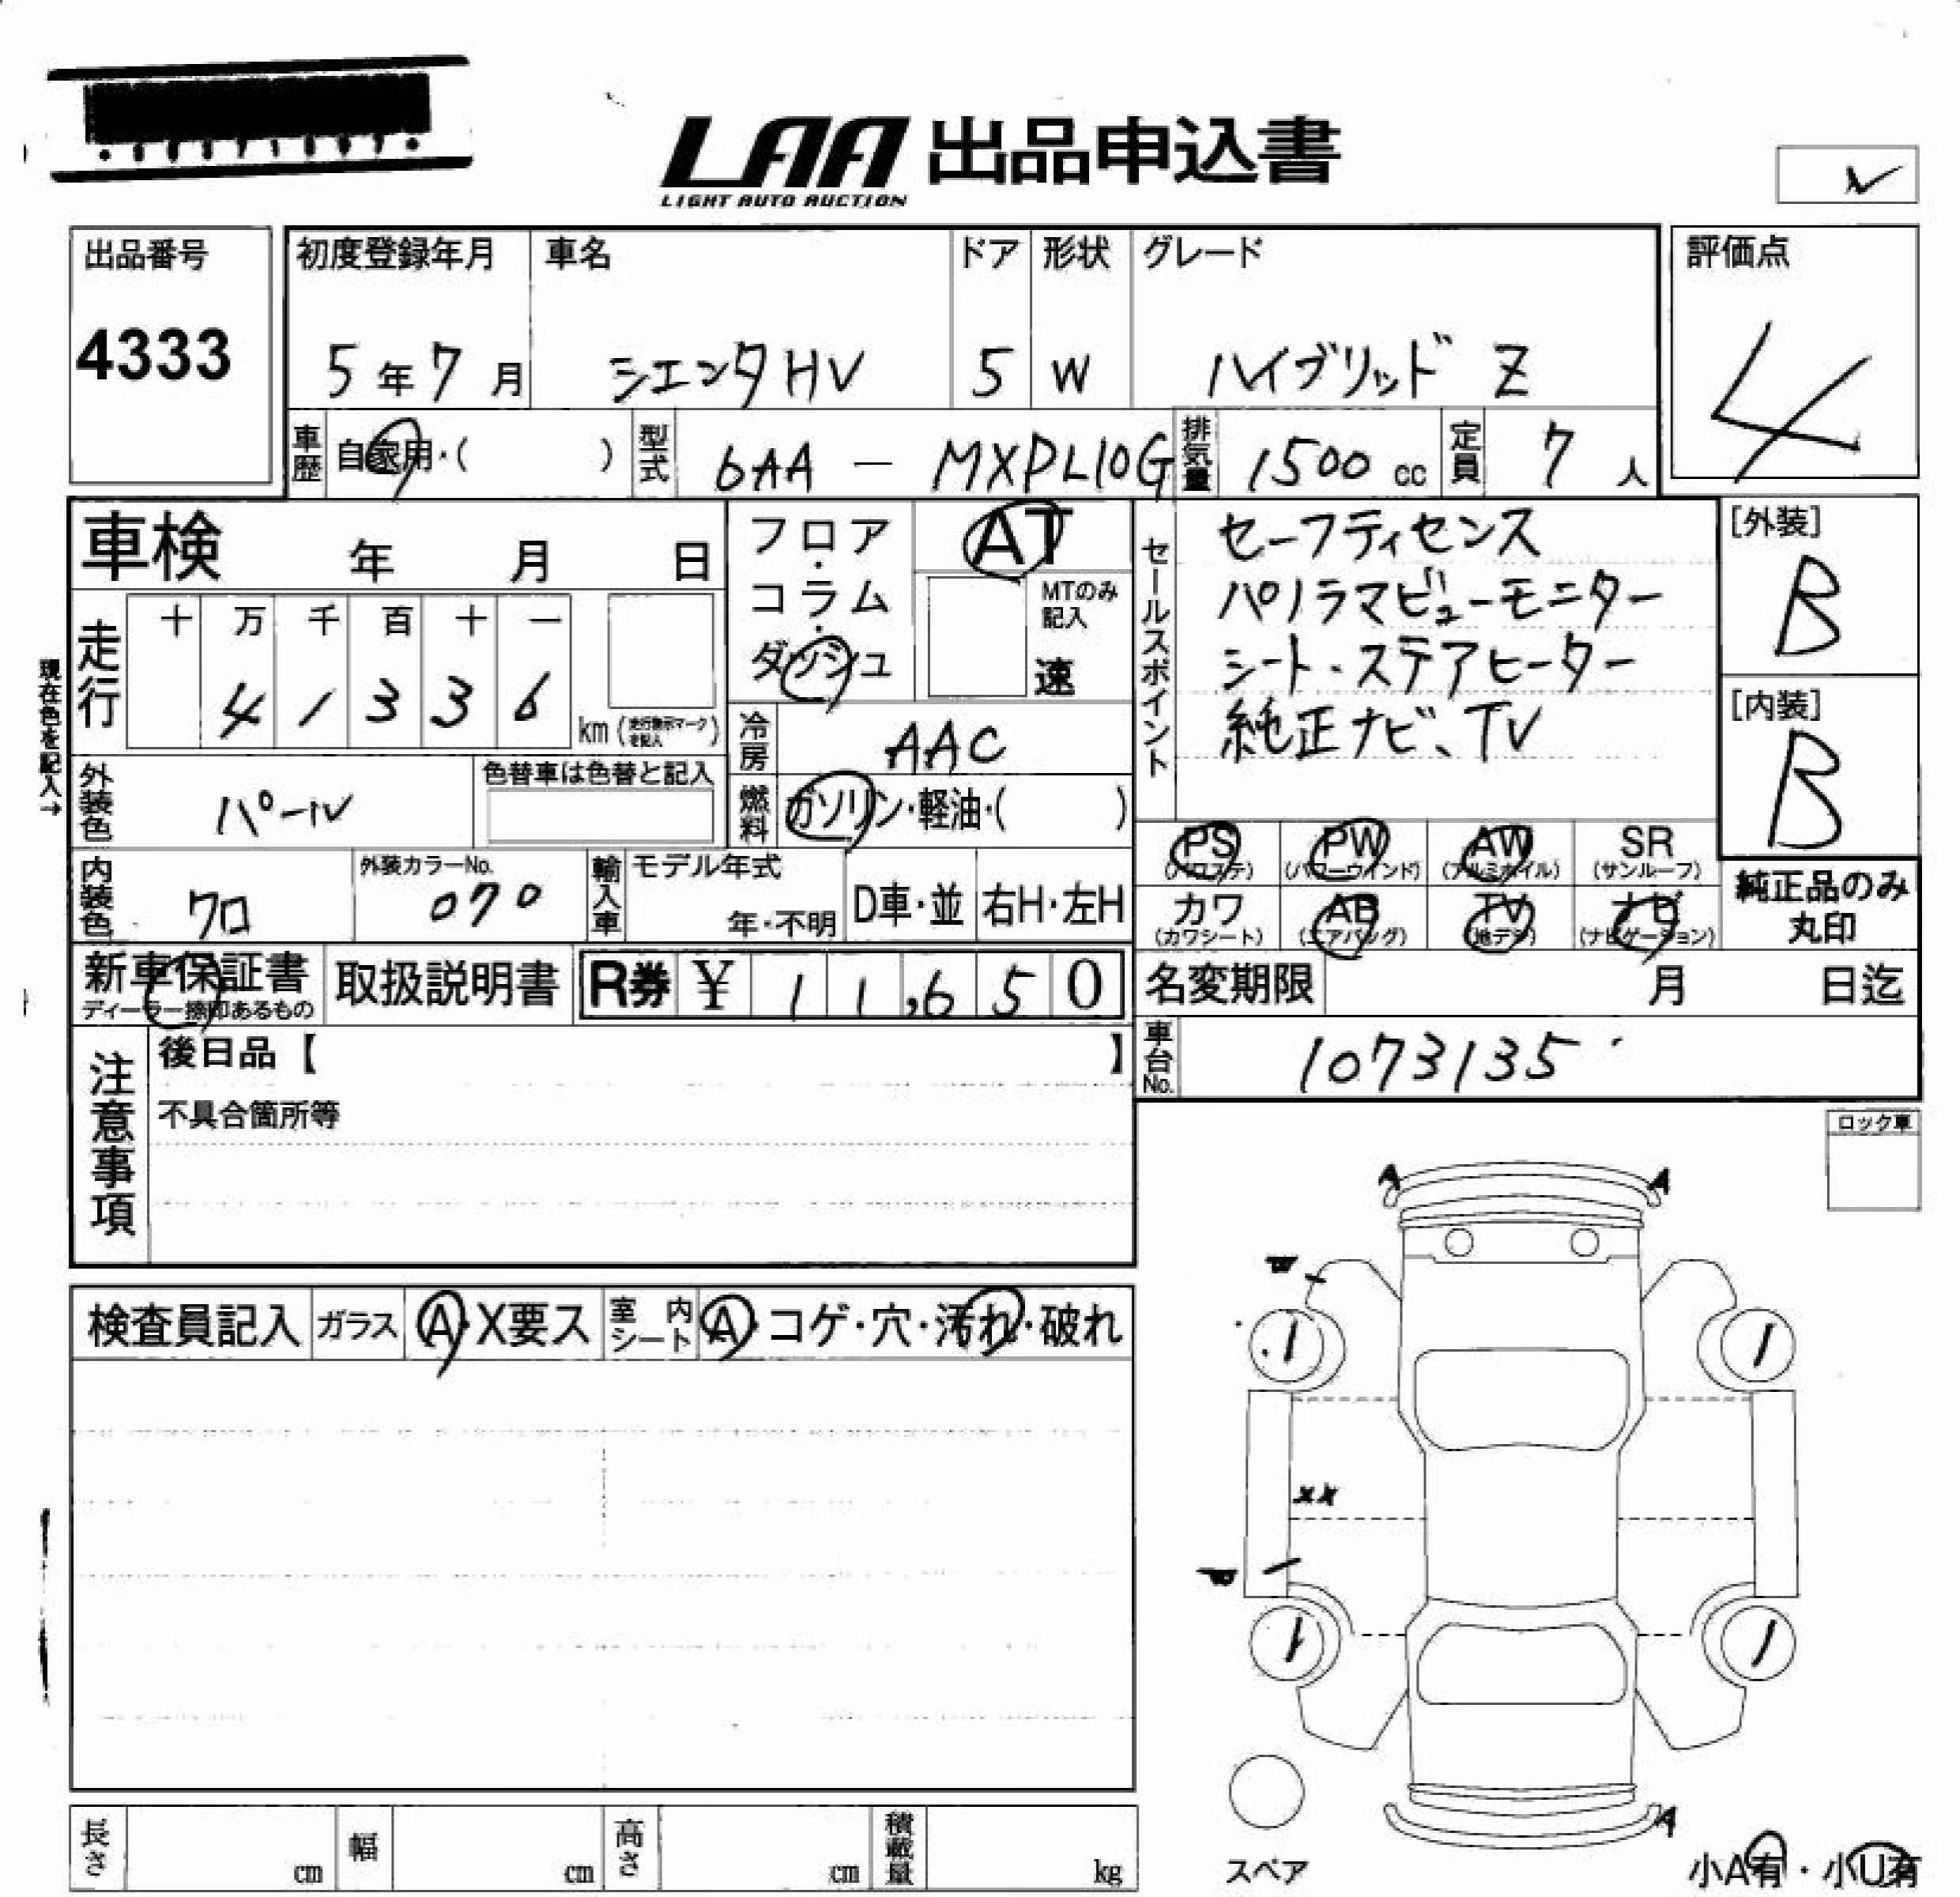 LAA 出品申込書
LIGHT AUTO AUCTION
出品番号
4333
初度登録年月
5年7月
車名
シエンタHV
ドア
5
形状
W
グレード
ハイブリッド Z
評価点
4
車歴
自家用・( )
型式
6AA - MXPL10G
排気量
1500 cc
定員
7 人
車検 年 月 日
走行
十 万 千 百 十 一
4 1 3 3 6
km (走行換示マーク
を記入)
現在色を記入→
フロア・
コラム・
ダッシュ
AT
MTのみ
記入
速
冷房
AAC
燃料
ガソリン・軽油・( )
外装色
パール
色替車は色替と記入
内装色
クロ
外装カラーNo.
070
輸入車
モデル年式
年・不明
D車・並
右H・左H
セールスポイント
セーフティセンス
パノラマビューモニター
シート・ステアヒーター
純正ナビ、TV
[外装]
B
[内装]
B
PS PW AW SR
(パワステ) (パワーウィンド) (アルミホイル) (サンルーフ)
カワ AB TV ナビ
(カワシート) (エアバッグ) (地デジ) (ナビゲーション)
純正品のみ
丸印
新車保証書
ディーラー捺印あるもの
取扱説明書
R券 ¥ 11,650
名変期限 月 日迄
車台No.
1073135
注意事項
後日品【 】
不具合箇所等
ロック車
検査員記入
ガラス
A・X要ス
室内
シート
A・コゲ・穴・汚れ・破れ
A A
XX
A
長さ cm
幅 cm
高さ cm
積載量 kg
スペア
小A有・小U有